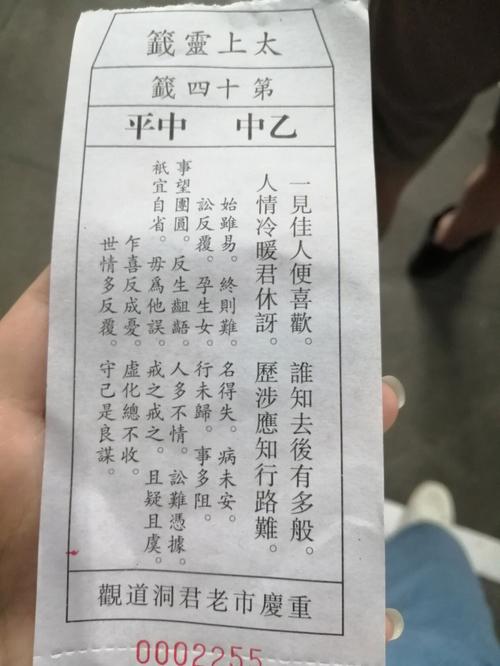 太上靈籤
第十四籤
乙中 中平
一見佳人便喜歡。誰知去後有多般。
人情冷暖君休訝。歷涉應知行路難。
始雖易。終則難。名得失。病未安。
訟反覆。孕生女。行未歸。事多阻。
事望團圓。反生齟齬。人多不情。訟難憑據。
祇宜自省。毋爲他誤。戒之戒之。且疑且虞。
乍喜反成憂。虛化總不收。
世情多反覆。守己是良謀。
重慶市老君洞道觀
0002255